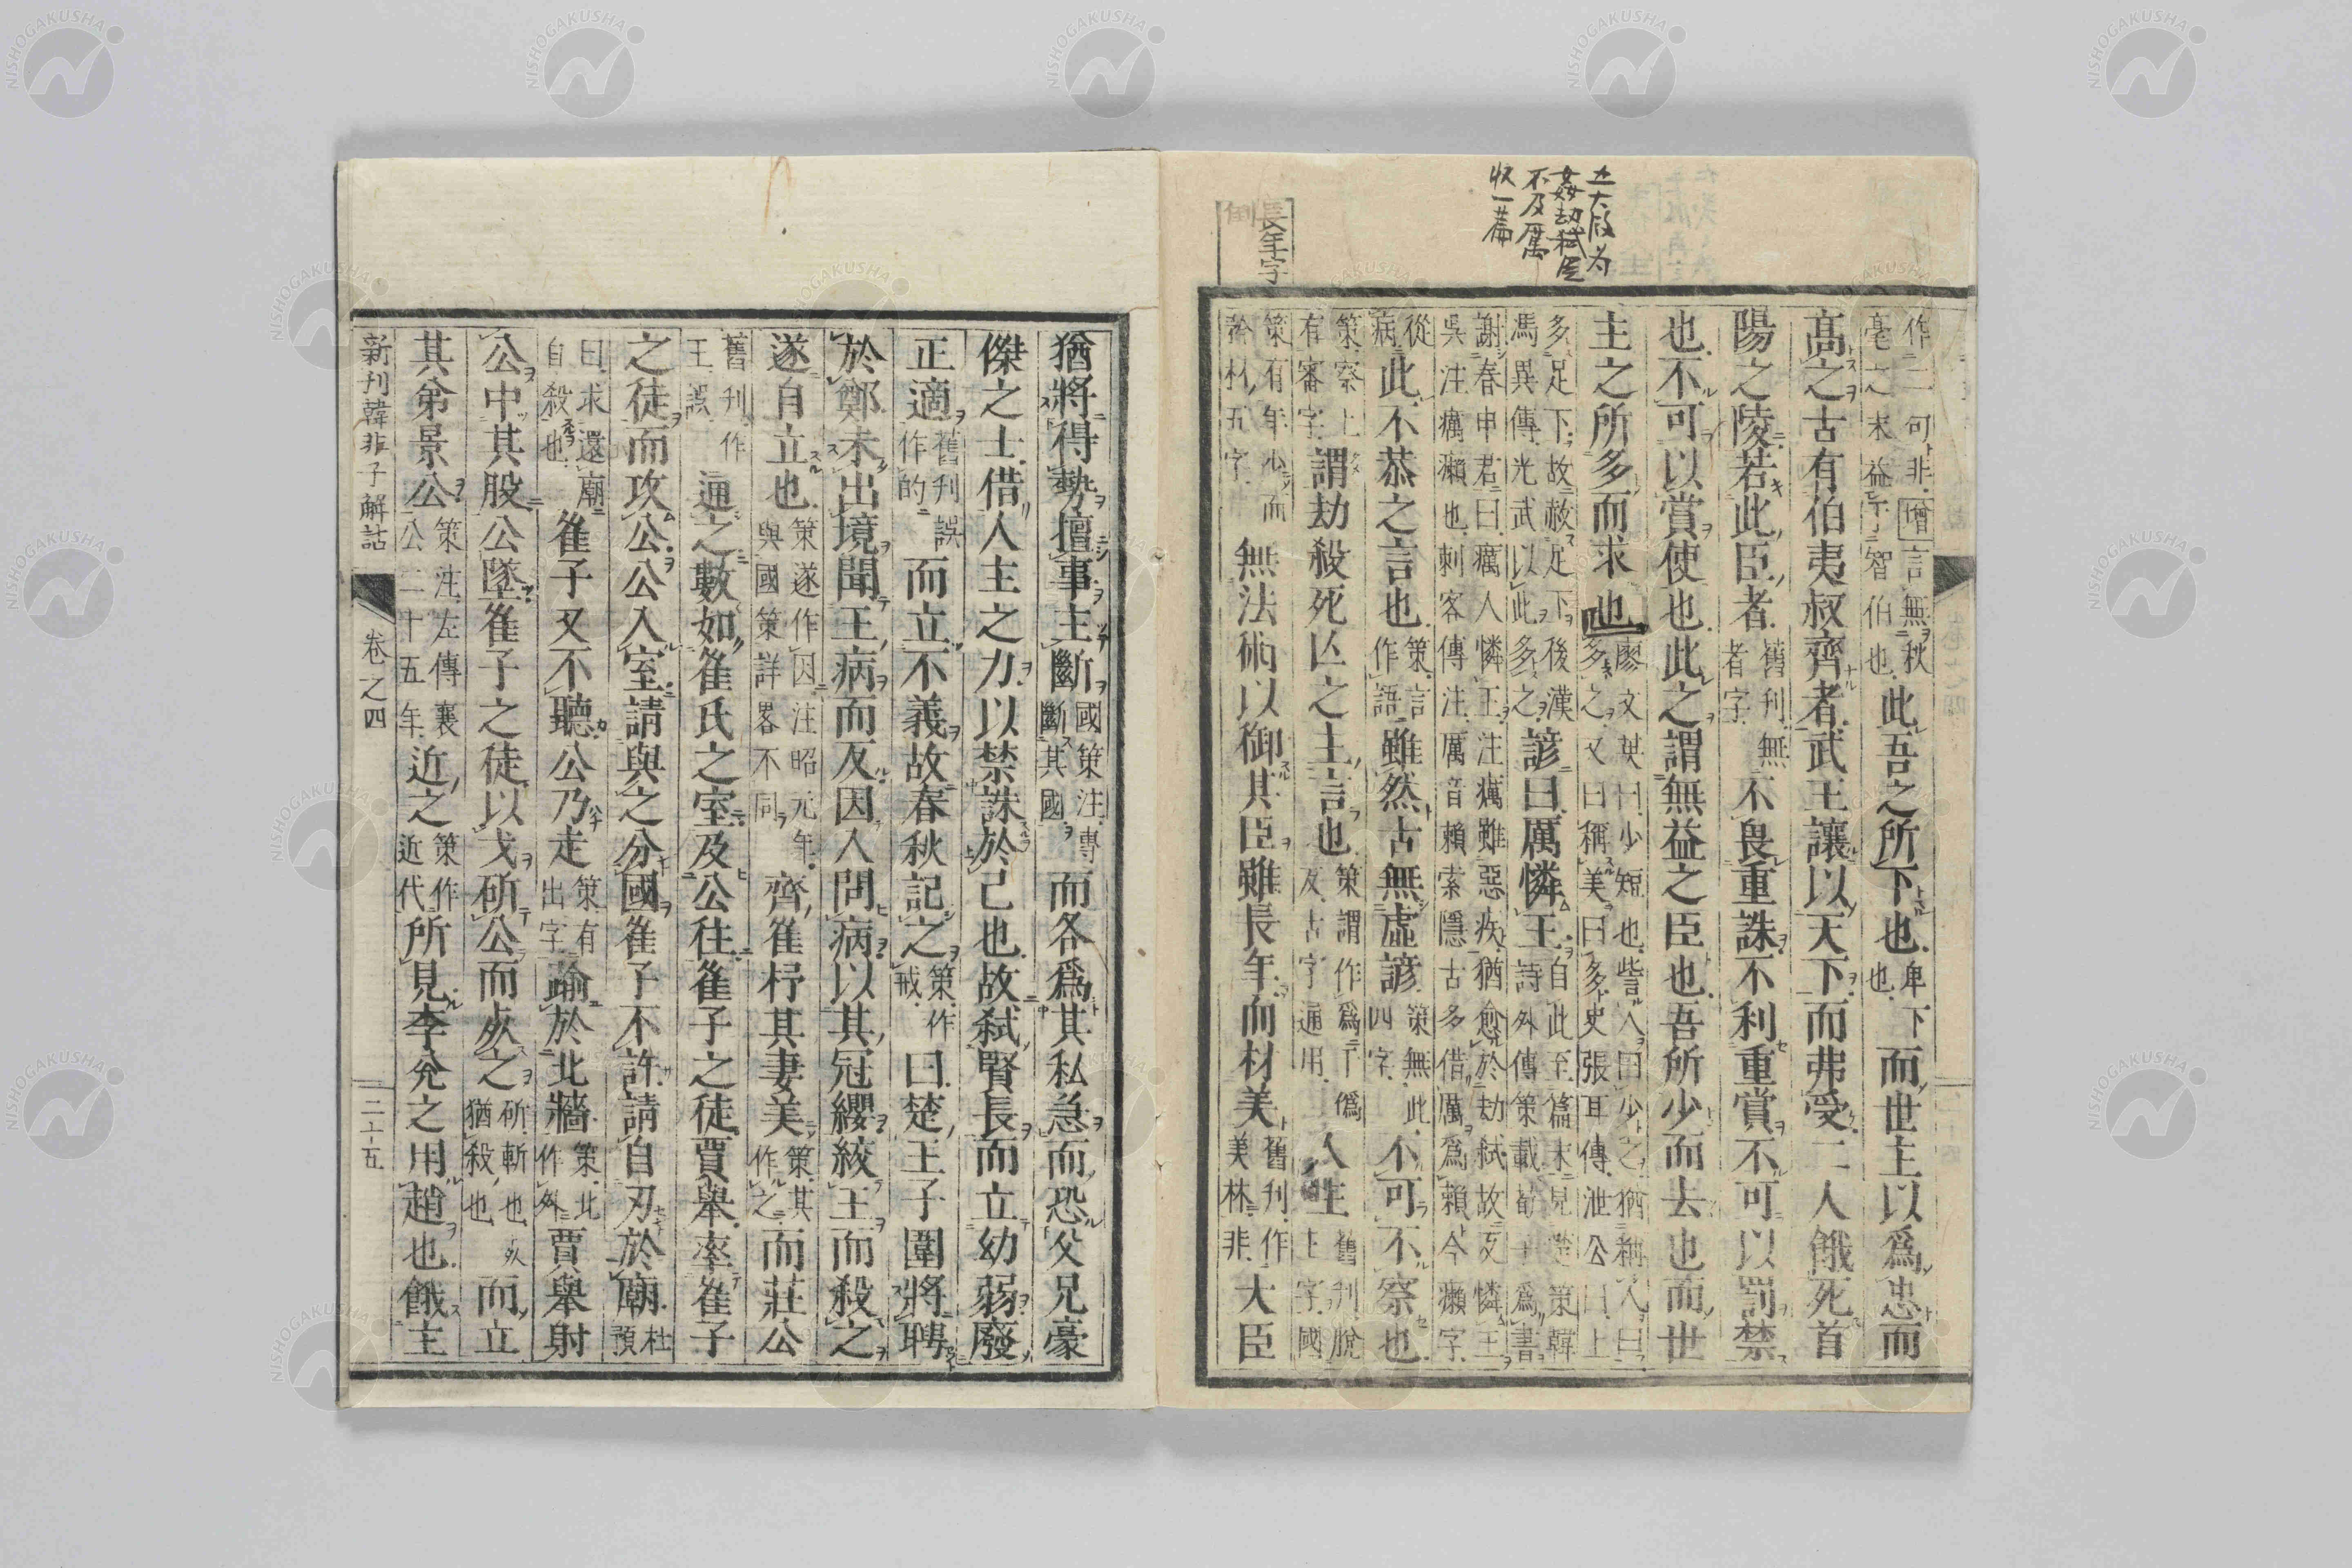 五大段为
姦劫弑臣
不及厲
収一篇
長年字
倒
作二可非增言無秋
毫之末益于智伯也此吾之所下也卑下
也而世主以爲忠而
高之古有伯夷叔齊者武王讓以天下而弗受二人餓死首
陽之陵若此臣者舊刊無
者字不畏重誅不利重賞不可以罰禁
也不可以賞使也此之謂無益之臣也吾所少而去也而世
主之所多而求也廖文英曰少短也訾人曰少之猶稱人曰
多之又曰稱美曰多史張耳傳泄公曰上
多足下故赦足下後漢
馮異傳光武以此多之諺曰厲憐王自此至篇末見楚策韓
詩外傳策載荀子爲書
謝春申君曰癘人憐王注癘雖惡疾猶愈於劫弑故反憐王
吳注癘癩也刺客傳注厲音賴索隱古多借厲爲賴今癩字
從
病此不恭之言也策言
作語雖然古無虛諺策無此
四字不可不察也
策察上
有審字謂劫殺死亾之主言也策謂作爲下僞
及古字通用人主舊刊脫
主字國
策有年少而
矜材五字無法術以御其臣雖長年而材美舊刊作
美林非大臣
猶將得勢擅事主斷國策注專
斷其國而各爲其私急而恐父兄豪
傑之士借人主之力以禁誅於己也故弑賢長而立幼弱廢
正適舊刊誤
作的而立不義故春秋記之策作
戒曰楚王子圍將聘
於鄭未出境聞王病而反因入問病以其冠纓絞王而殺之
遂自立也策遂作因注昭元年
與國策詳畧不同齊崔杼其妻美策其
作之而莊公
舊刊作
王誤通之數如崔氏之室及公往崔子之徒賈舉率崔子
之徒而攻公公入室請與之分國崔子不許請自刃於廟杜
預
曰求還廟
自殺也崔子又不聽公乃走策有
出字踰於北牆策北
作外賈舉射
公中其股公墜崔子之徒以戈斫公而死之斫斬也死
猶殺也而立
其弟景公策注左傳襄
公二十五年近之策作
近代所見李兌之用趙也餓主
新刊韓非子解詁
卷之四
二十五
NISHOGAKUSHA